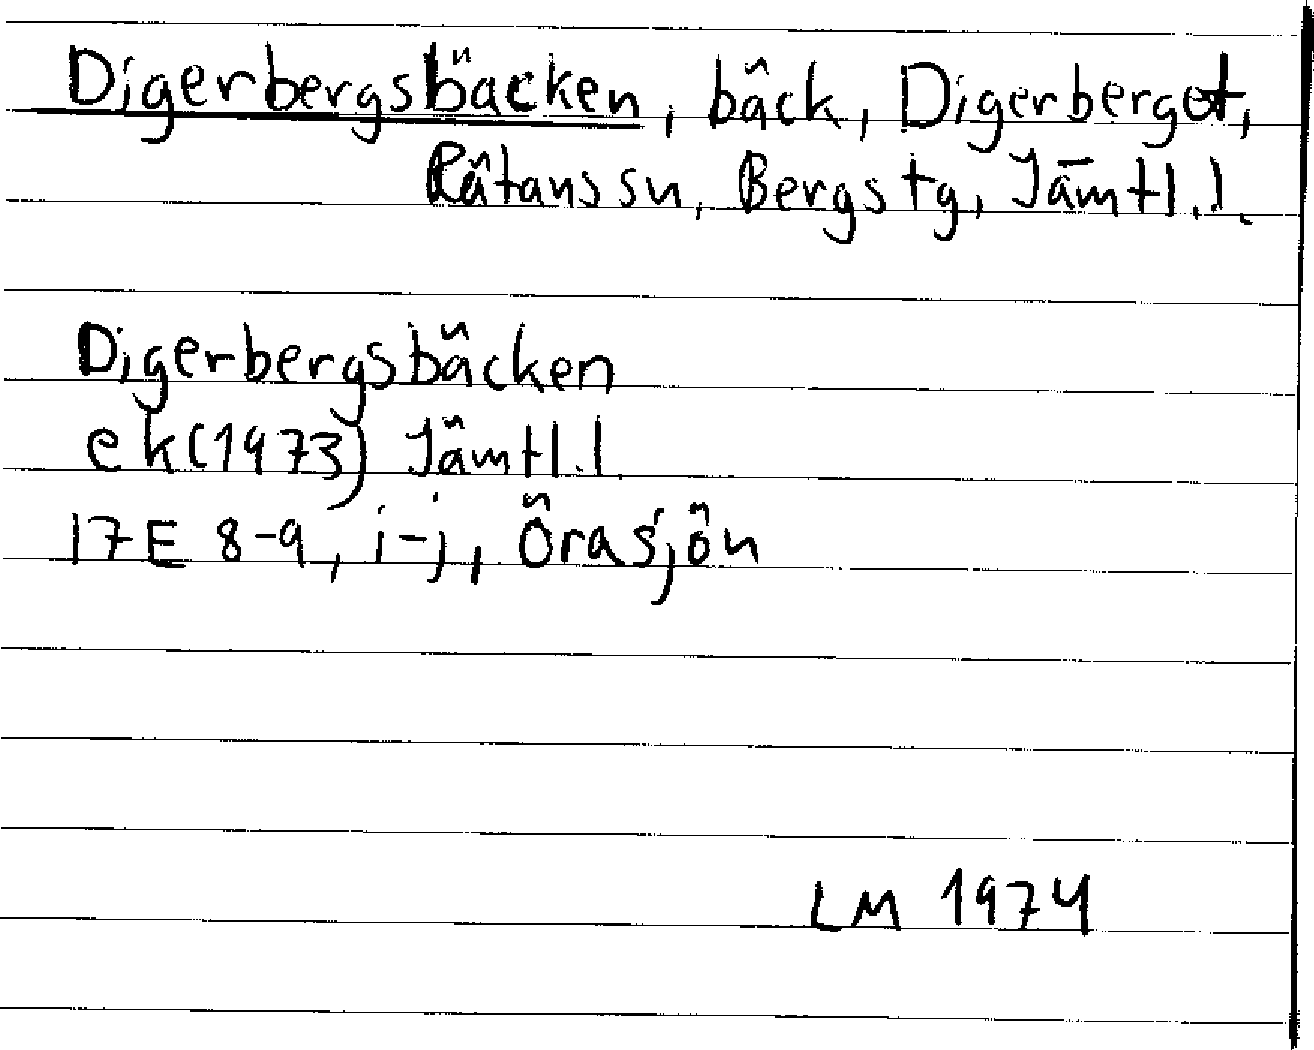 Digerbergsbäcken, bäck, Digerberget,
Rätans sn, Bergs tg, Jämtl.l.
Digerbergsbäcken
ek(1973) Jämtl.l.
17E 8-9, i-j, Örasjön
LM 1974